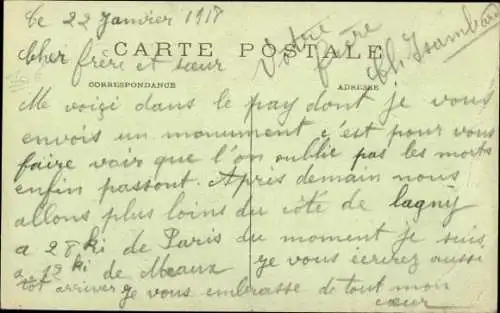 Le 22 Janvier 1917
CARTE POSTALE
Cher frère et sœur
CORRESPONDANCE
ADRESSE
Me voiçi dans le pay dont je vous
envois un monument c'est pour vous
faire voir que l'on oublie pas les morts
enfin passont. Après demain nous
allons plus loins du côté de lagny
a 28 ki de Paris du moment je suis
a 12 ki de Meaux je vous écrirez aussi
tôt arriver je vous embrasse de tout mon
cœur
Votre
frère
Ch. Isambard